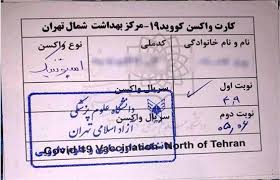 کارت واکسن کووید۱۹-مرکز بهداشت شمال تهران
نام و نام خانوادگی کدملی نوع واکسن
اسپوتنیک
نوبت اول سریال واکسن
۴,۹
نوبت دوم سریال واکسن
۰۵,۰۶
دانشگاه علوم پزشکی
آزاد اسلامی تهران
Covid-19 Vaccination-North of Tehran